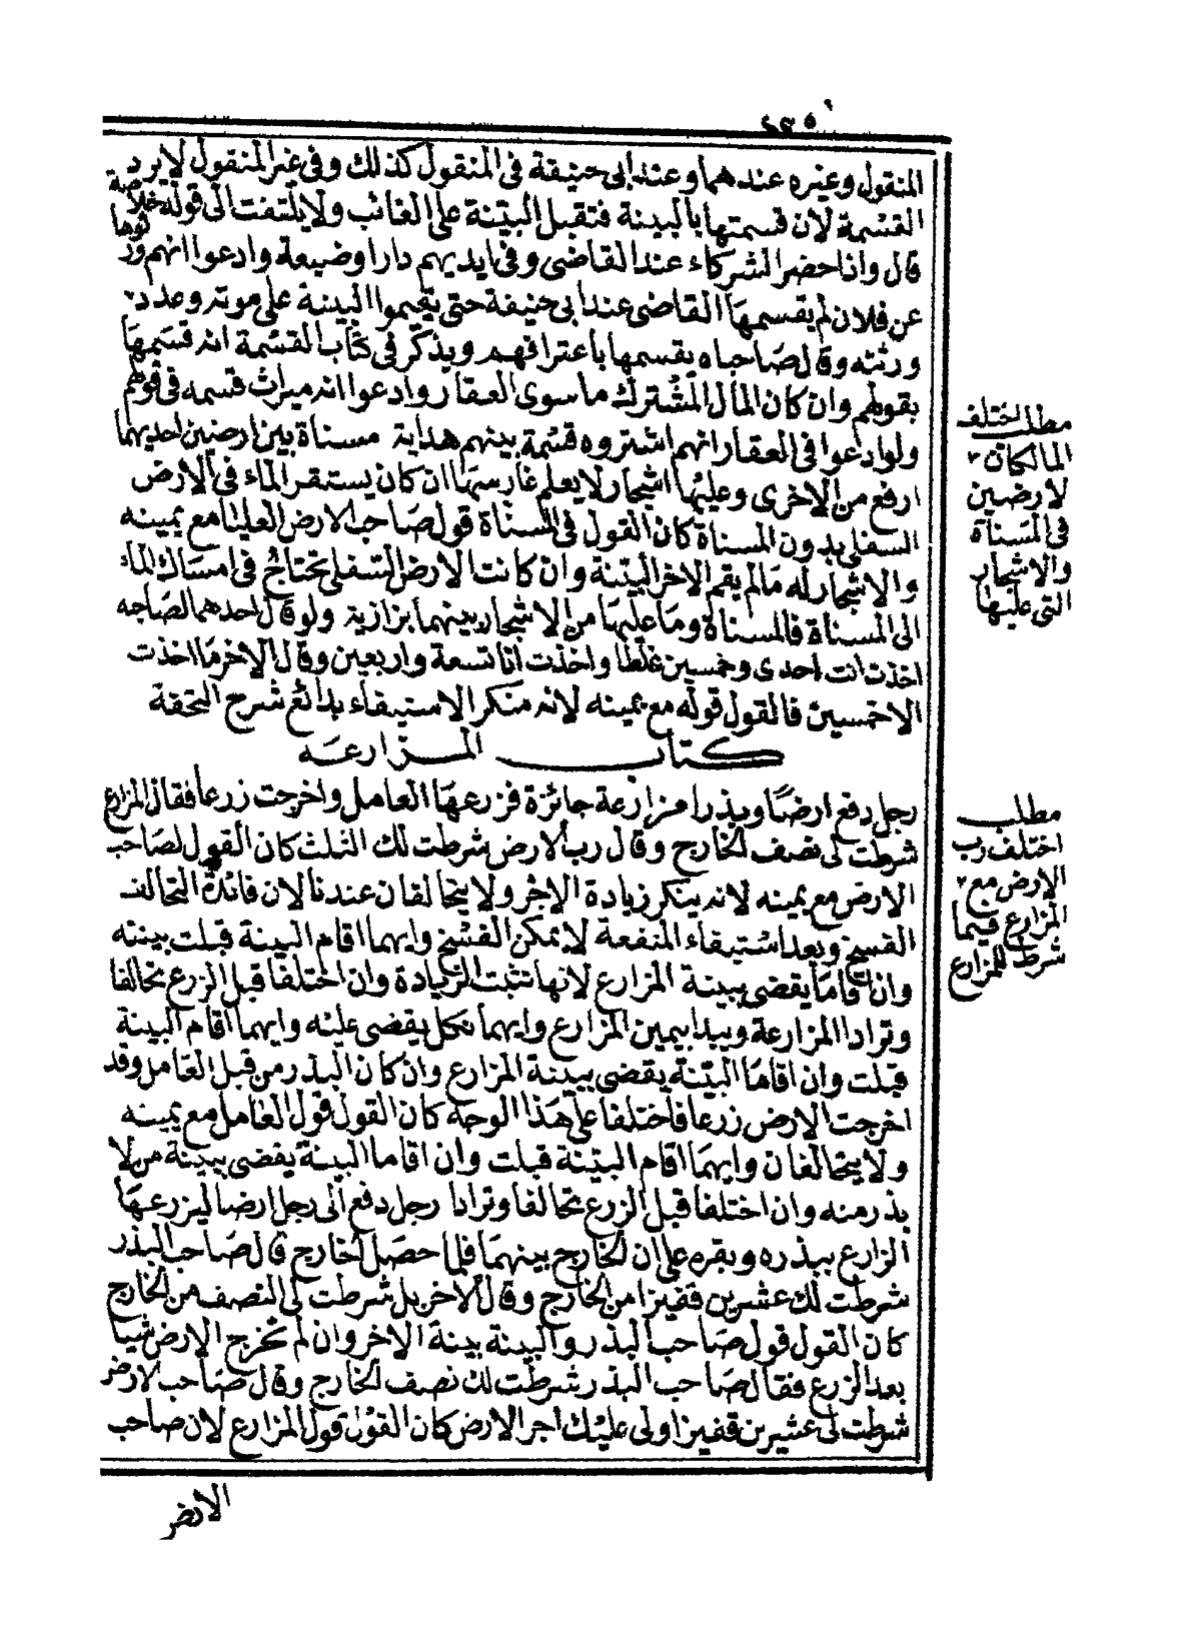 المنقول وغيره عندهما وعند ابى حنيفة فى المنقول كذلك وفى غير المنقول لا يرد
القسمة لان قسمتها بالبينة فتقبل البينة على الغائب ولا يلتفت الى قوله خلاصة
قال واذا حضر الشركاء عند القاضى وفى ايديهم دار او ضيعة وادعوا انهم ورثوها
عن فلان لم يقسمها القاضى عند ابى حنيفة حتى يقيموا البينة على موته وعدد
ورثته وقال صاحباه يقسمها باعترافهم ويذكر فى كتاب القسمة انه قسمها
بقولهم وان كان المال المشترك ما سوى العقار وادعوا انه ميراث قسمه فى قولهم
ولو ادعوا فى العقار انهم اشتروه قسمة بينهم هداية مسناة بين ارضين احديهما
ارفع من الاخرى وعليها اشجار لا يعلم غارسها ان كان يستقر الماء فى الارض
السفلى بدون المسناة كان القول فى المسناة قول صاحب الارض العليا مع يمينه
والاشجار له مالم يقم الاخر البينة وان كانت الارض السفلى تحتاج فى امساك الماء
الى المسناة فالمسناة وما عليها من الاشجار بينهما بزازية ولو قال احدهما لصاحبه
اخذت انت احدى وخمسين غلطا واخذت انا تسعة واربعين وقال الاخر ما اخذت
الا خمسين فالقول قوله مع يمينه لانه منكر الاستيفاء بدائع شرح التحفة
كتاب المزارعة
رجل دفع ارضا وبذرا مزارعة جائزة فزرعها العامل واخرجت زرعا فقال المزارع
شرطت لى نصف الخارج وقال رب الارض شرطت لك الثلث كان القول لصاحب
الارض مع يمينه لانه ينكر زيادة الاجر ولا يتحالفان عندنا لان فائدة التحالف
الفسخ وبعد استيفاء المنفعة لا يمكن الفسخ وايهما اقام البينة قبلت بينته
وان اقاما يقضى ببينة المزارع لانها تثبت الزيادة وان اختلفا قبل الزرع تحالفا
وترادا المزارعة ويبدا بيمين المزارع وايهما نكل يقضى عليه وايهما اقام البينة
قبلت وان اقاما البينة يقضى ببينة المزارع وان كان البذر من قبل العامل وقد
اخرجت الارض زرعا فاختلفا على هذا الوجه كان القول قول العامل مع يمينه
ولا يتحالفان وايهما اقام البينة قبلت وان اقاما البينة يقضى ببينة من لا
بذر منه وان اختلفا قبل الزرع تحالفا وترادا رجل دفع الى رجل ارضا ليزرعها
الزارع ببذره وبقره على ان الخارج بينهما فلما حصل الخارج قال صاحب البذر
شرطت لك عشرين قفيزا من الخارج وقال الاخر بل شرطت لى النصف من الخارج
كان القول قول صاحب البذر والبينة بينة الاخر وان لم تخرج الارض شيا
بعد الزرع فقال صاحب البذر شرطت لك نصف الخارج وقال صاحب الارض
شرطت لى عشرين قفيزا ولى عليك اجر الارض كان القول قول المزارع لان صاحب
الارض
مطلب اختلف
المالكان
لارضين
فى المسناة
والاشجار
التى عليها
مطلب
اختلف رب
الارض مع
المزارع فيما
شرط للمزارع